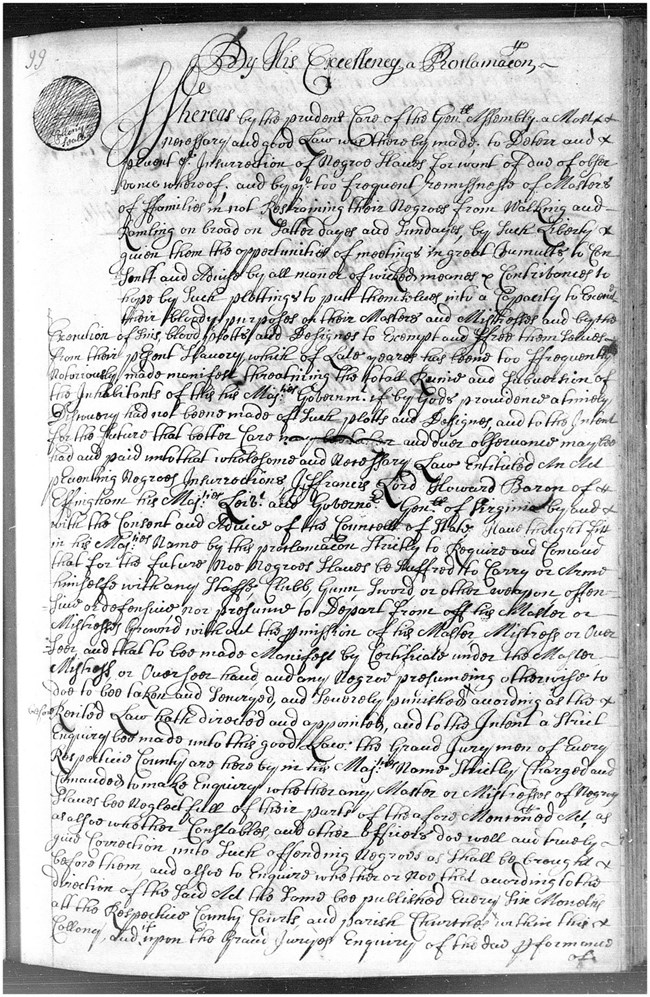 99
By His Excellency a Proclamacon
Whereas by the prudent Care of the Genll Assembly a Most &
necessary and good Law was there by made, to Deterr and &
prvent ye Insurrection of Negroe Slaves for want of due of obser
vance whereof, and by ye too frequent remissness of Masters
of ffamilies in not Restraining their Negroes from Walking and
Rambling on broad on Satterdayes and Sundayes, by Such Liberty &
given them the opportunities of meetings in great Numults to Con
Sent and Advise by all maner of wicked meanes & Contrivances to
hope by Such plottings to putt themselves into a Capacity to Execute
their bloody purposes on their Masters and Mistresses and by the
Execution of bloody plotts and Designes to Exempt and ffree themselves
from their prsent Slavery which of Late yeares has beene too ffrequently
Notoriously made manifest threatning the totall Ruine and Subversion of
the Inhabitants of this his Majties Governmt. if by Gods providence a timely
Discovery had not beene made of Such plotts and Designes, and to the Intent
for the future that better Care and due observance may bee
had and paid unto that wholesome and Necessary Law Entituled An Act
preventing Negroes Insurrections I ffrancis Lord Howard Baron of &
Effingham his Majties Leivt and Governor Genll of Virginia by and &
with the Consent and Advice of the Councell of State Have thought fitt
in his Majties Name by this proclamacon Strictly to Require and Comand
that for the future Noe Negroes Slaves be Suffred to Carry or Arme
himselfe with any Staffe Clubb, Gunn Sword or other weapon offen
sive or defensive nor presume to Depart from off his Master or
Mistresses Ground without the pmission of his Master Mistress or Over
Seer, and that to bee made Manifest by Certificate under the Master
Mistress or Overseer hand, and any Negroe presumeing otherwise to
doe to bee taken and Scurged, and Severely punished according as the &
before
Recited Law hath directed and appointed, and to the Intent a Strict
Enquiry bee made unto this good Law, the Grand Jurymen of Every
Respective County are here by in his Majties Name Strictly Charged and
Comanded to make Enquiry whether any Master or Mistresses of Negroe
Slaves bee Neglectfull of their parts of the afore Mentioned Act, as
as alsoe whether Constables, and other officers doe well and truely
give Correction unto Such offending Negroes as Shall be brought &
before them, and alsoe to Enquire whether or Noe that according to the
direction of the Said Act the Same bee published Every Six Moneths
att the Respective County Courts, and parish Churches within this &
Collony, and upon the Grand Juryes Enquiry of the due pformance
of